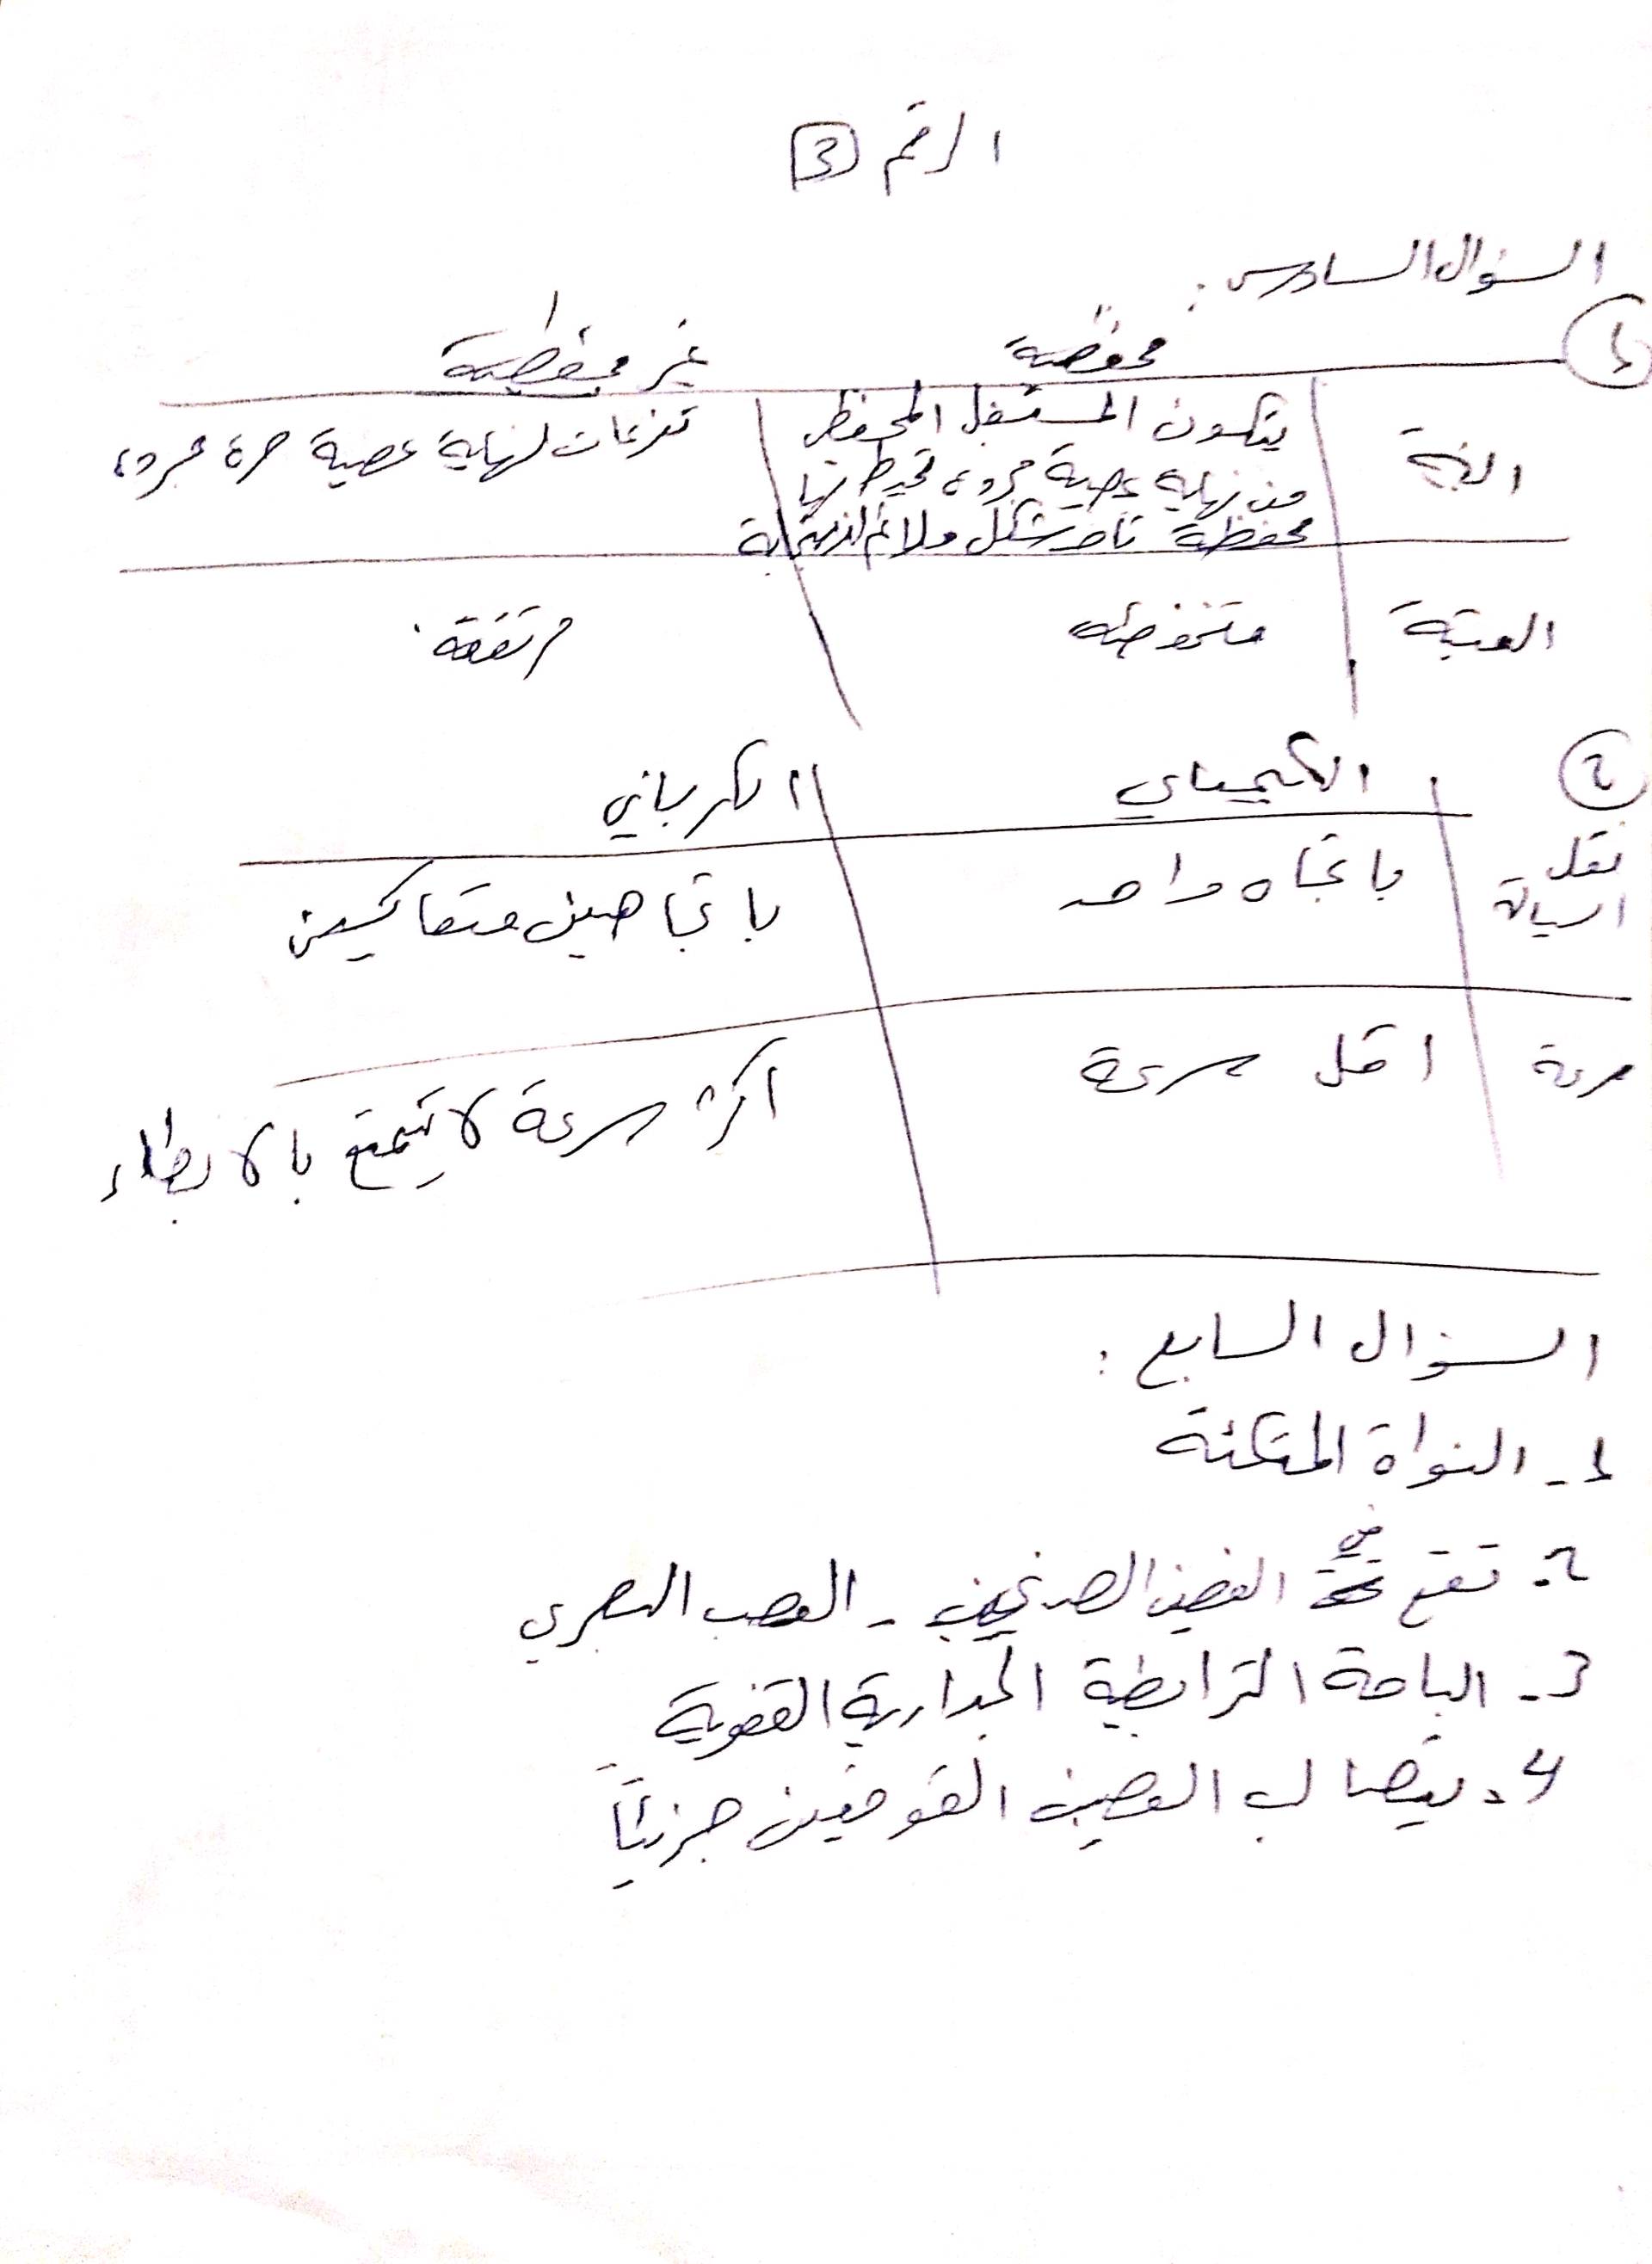 الرقم 3
السؤال السادس:
1
محفظية
غير محفظية
البنية
يتكون المستقبل المحفظي
من نهاية عصبية مجردة تحيط بها
محفظة تأخذ شكل ملائم للاستجابة
تفرعات لنهاية عصبية حرة مجردة
العتبة
منخفضة
مرتفعة
2
الكيميائي
الكهربائي
نقل
السيالة
باتجاه واحد
باتجاهين متعاكسين
سرعة
اقل سرعة
اكثر سرعة لا يتمتع بالابطاء
السؤال السابع:
1- النواة المتكئة
2- تقع في الفصين الصدغيين - العصب البصري
3- الباحة الترابطية الجدارية القفوية
4- يتصالب العصبين القوقعيين جزئياً